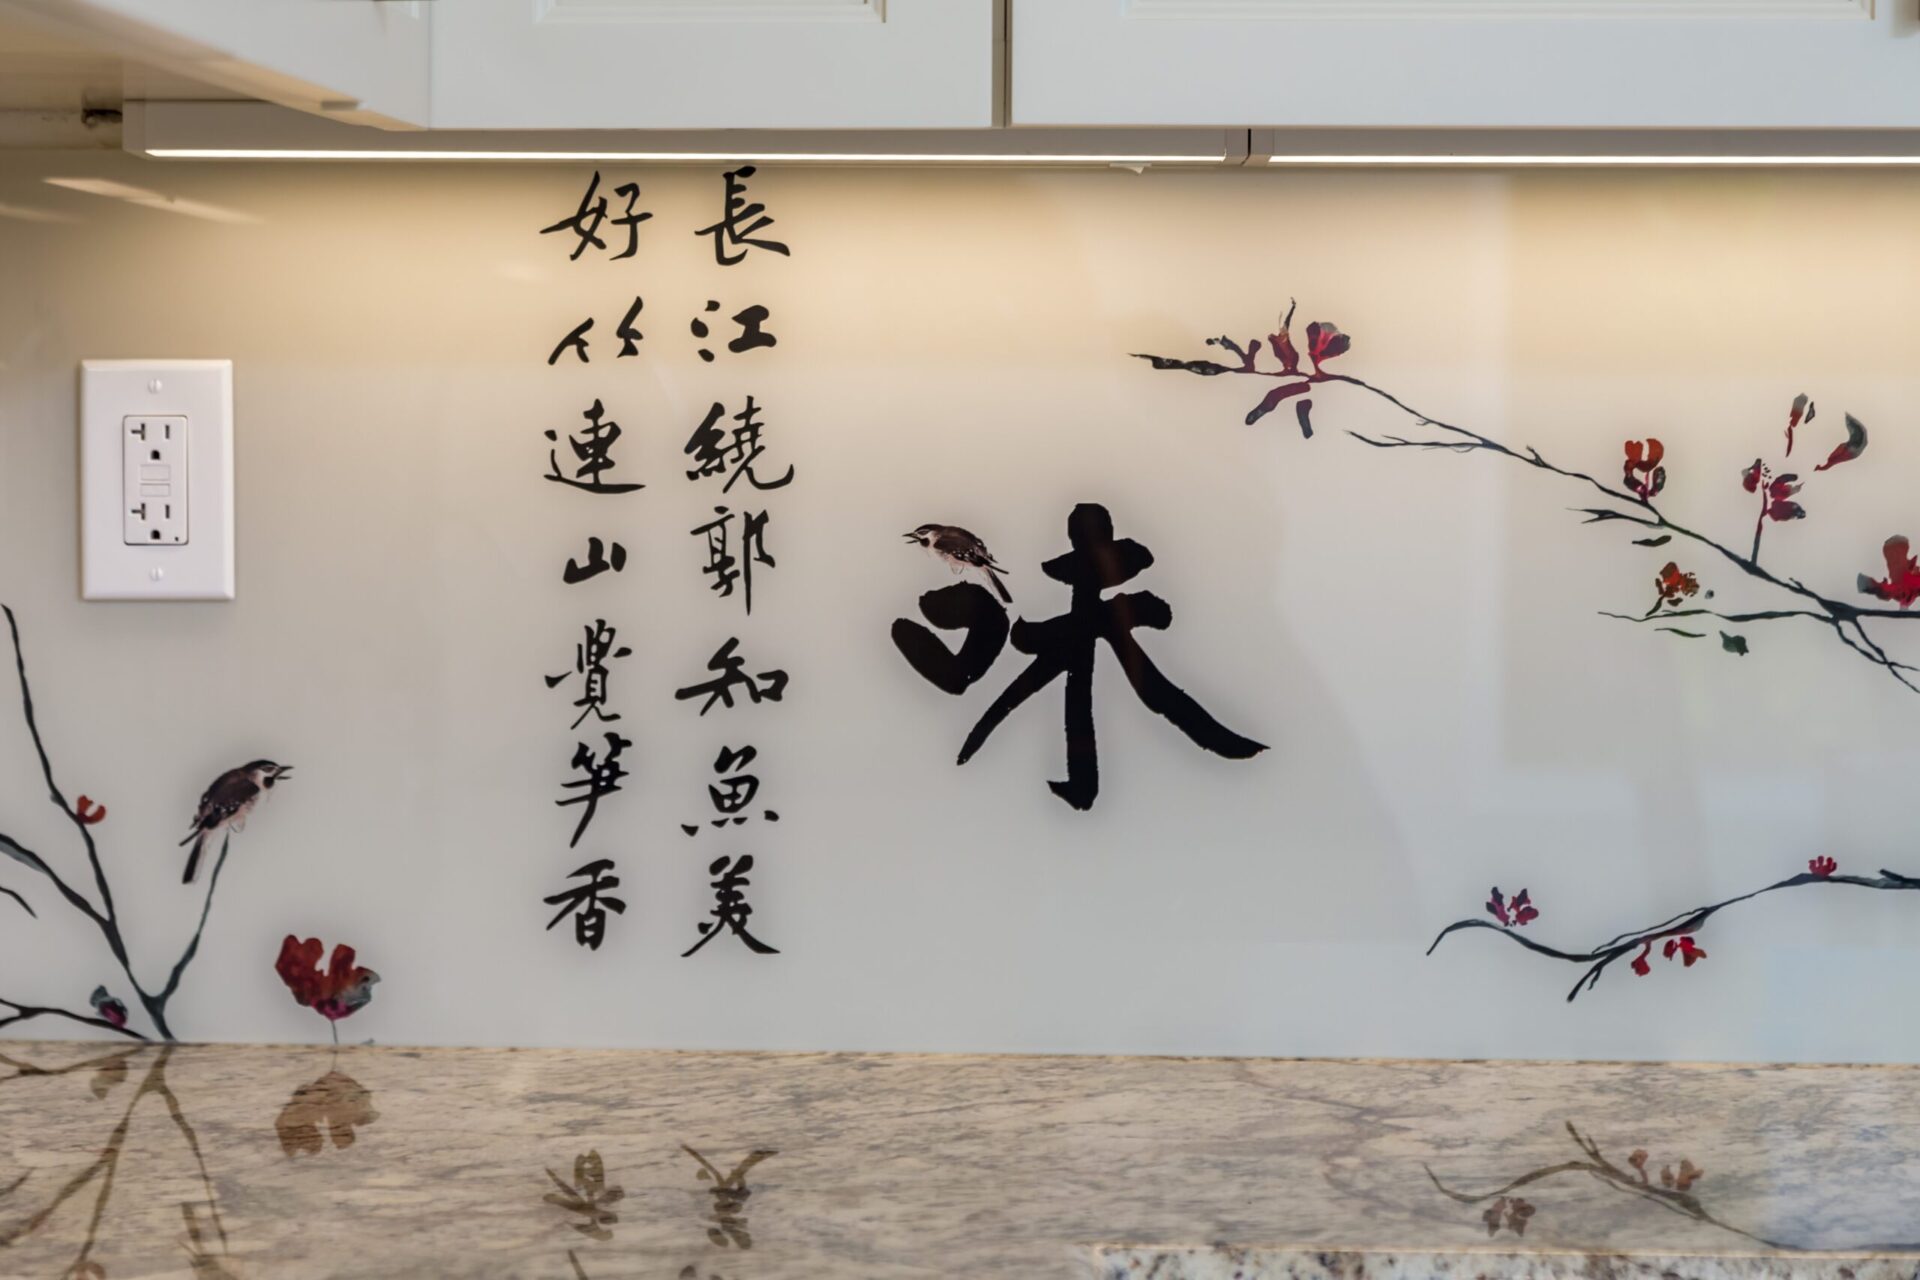 味
長江繞郭知魚美
好竹連山覺筍香